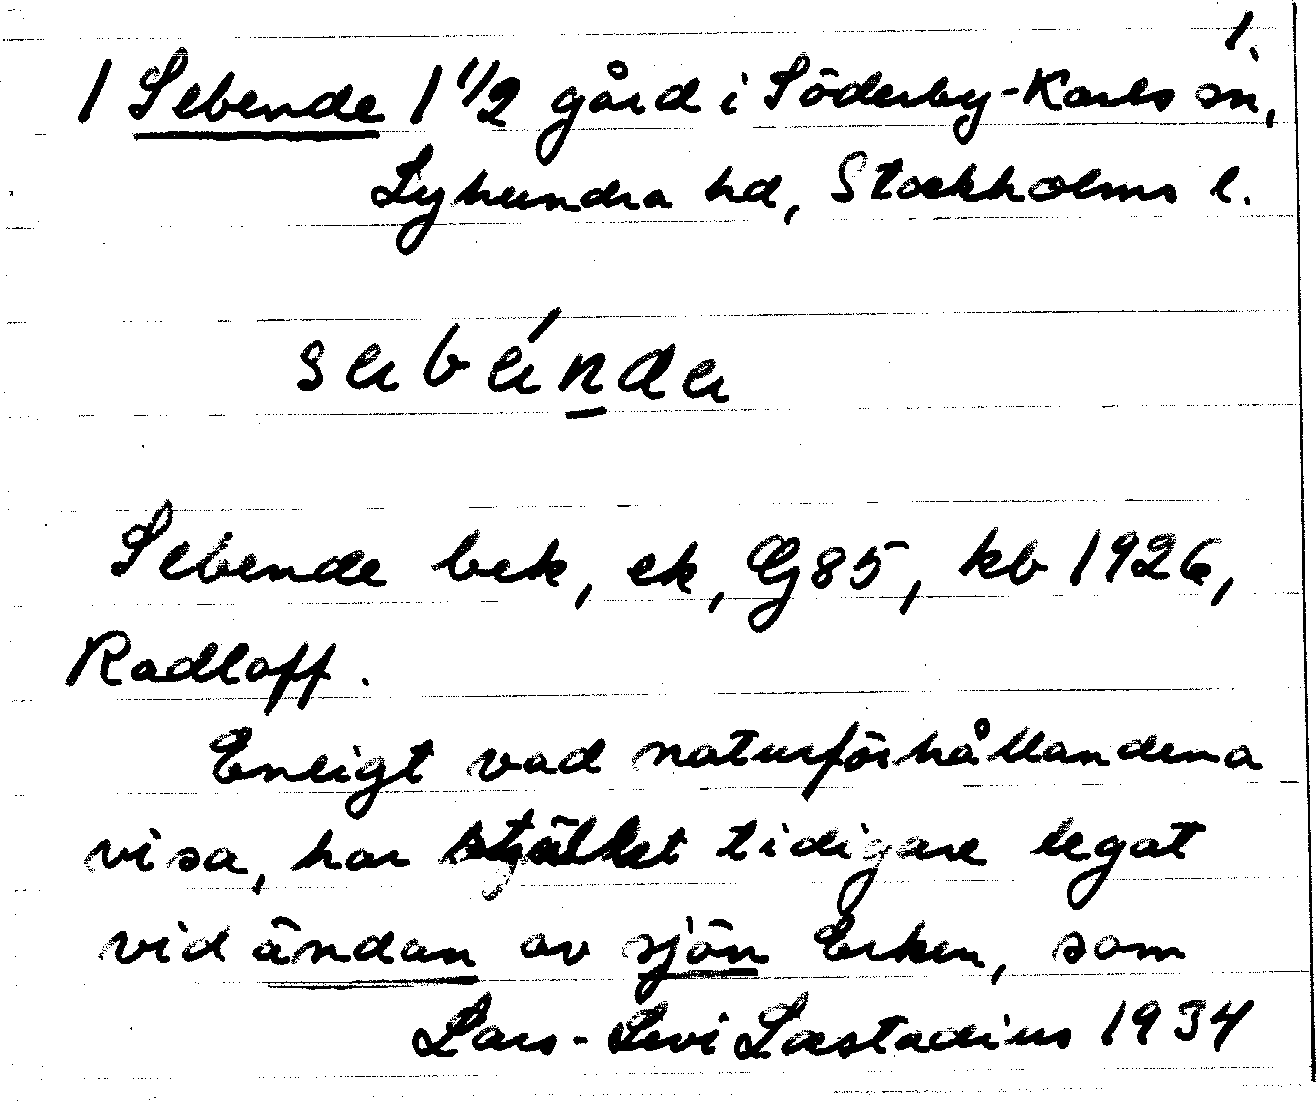 1.
1 Sebende 1 1/2 gård i Söderby-Karls sn,
Lyhundra hd, Stockholms l.
sebénde
Sebende bek, ek, Gj85, kb 1926,
Radloff.
Enligt vad naturförhållandena
visa, har stället tidigare legat
vid ändan av sjön Erken, som
Lars-Levi Læstadius 1934